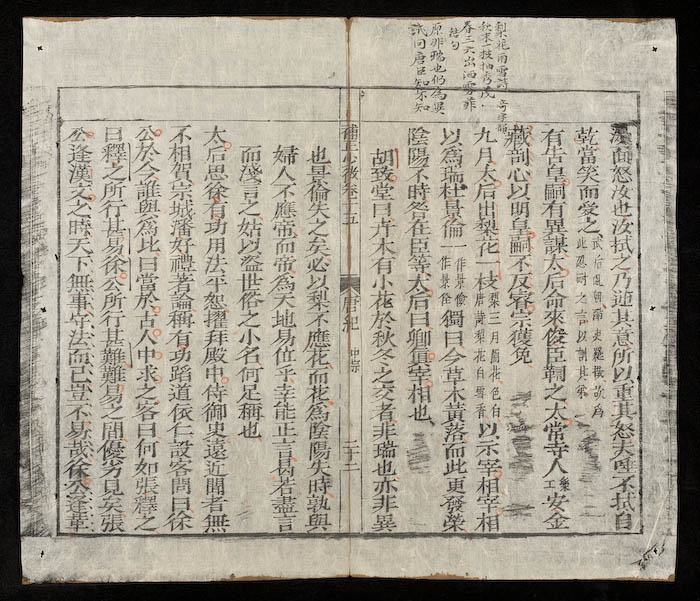 梨花雨雪詩
秋末一枝抽秀茂
春三六出洒雲非
詩句
原非瑞也仍為異
試問唐臣知不知
面怒汝也汝拭之乃逆其意所以重其怒夫唾不拭自
乾當笑而受之
有告皇嗣有異謀太后命來俊臣鞫之太常寺人安金
樂工
藏剖心以明皇嗣不反睿宗獲免
九月太后出梨花一枝以示宰相宰相
梨三月開花色白
唐詩梨花白雪香
以為瑞杜景倫獨曰今草木黃落而此更發榮
一作景儉
一作景佺
陰陽不時咎在臣等太后曰卿真宰相也
胡致堂曰卉木有小花於秋冬之交者非瑞也亦非異
補正心卷十五
唐紀
中宗
二十二
也景倫失之矣必以梨不應花而花為陰陽失時孰與
婦人不應帝而帝為天地易位乎幸能正言曷若盡言
而淺言之姑以盜世俗之小名何足稱也
太后思徐有功用法平恕擢拜殿中侍御史遠近聞者無
不相賀宗城潘好禮著論稱有功蹈道依仁設客問曰徐
公於今誰與為比曰當於古人中求之客曰何如張釋之
曰釋之所行甚易徐公所行甚難難易之間優劣見矣張
公逢漢文之時天下無事守法而已豈不易哉徐公逢革